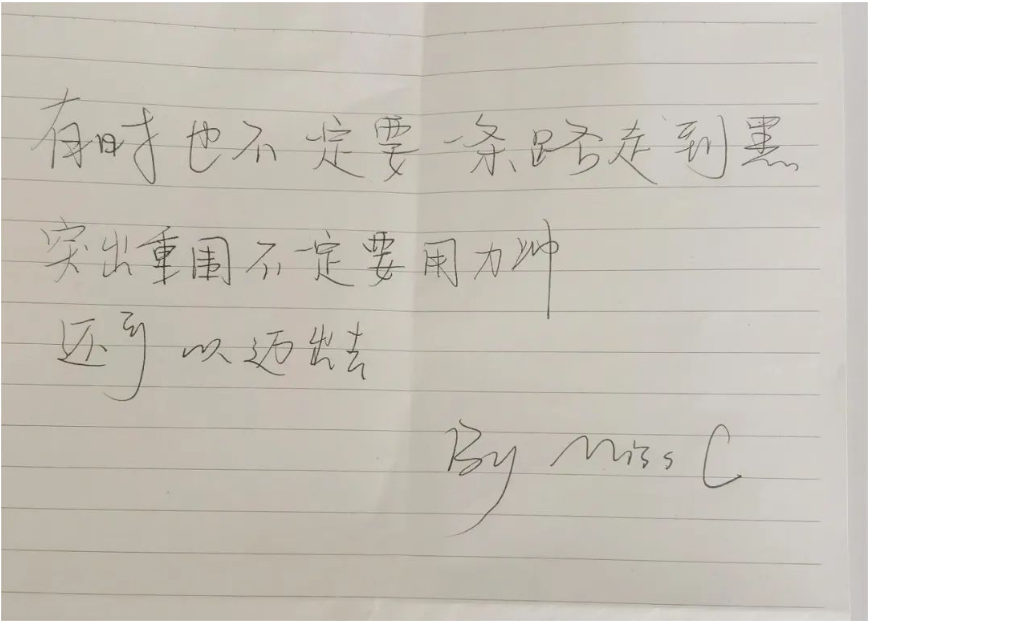 有时也不一定要一条路走到黑
突出重围不一定要用力冲
还可以迈出去
By Miss C